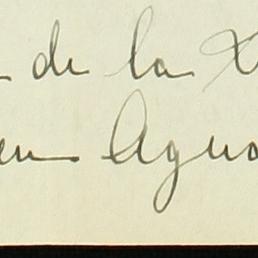 de la
en Agua